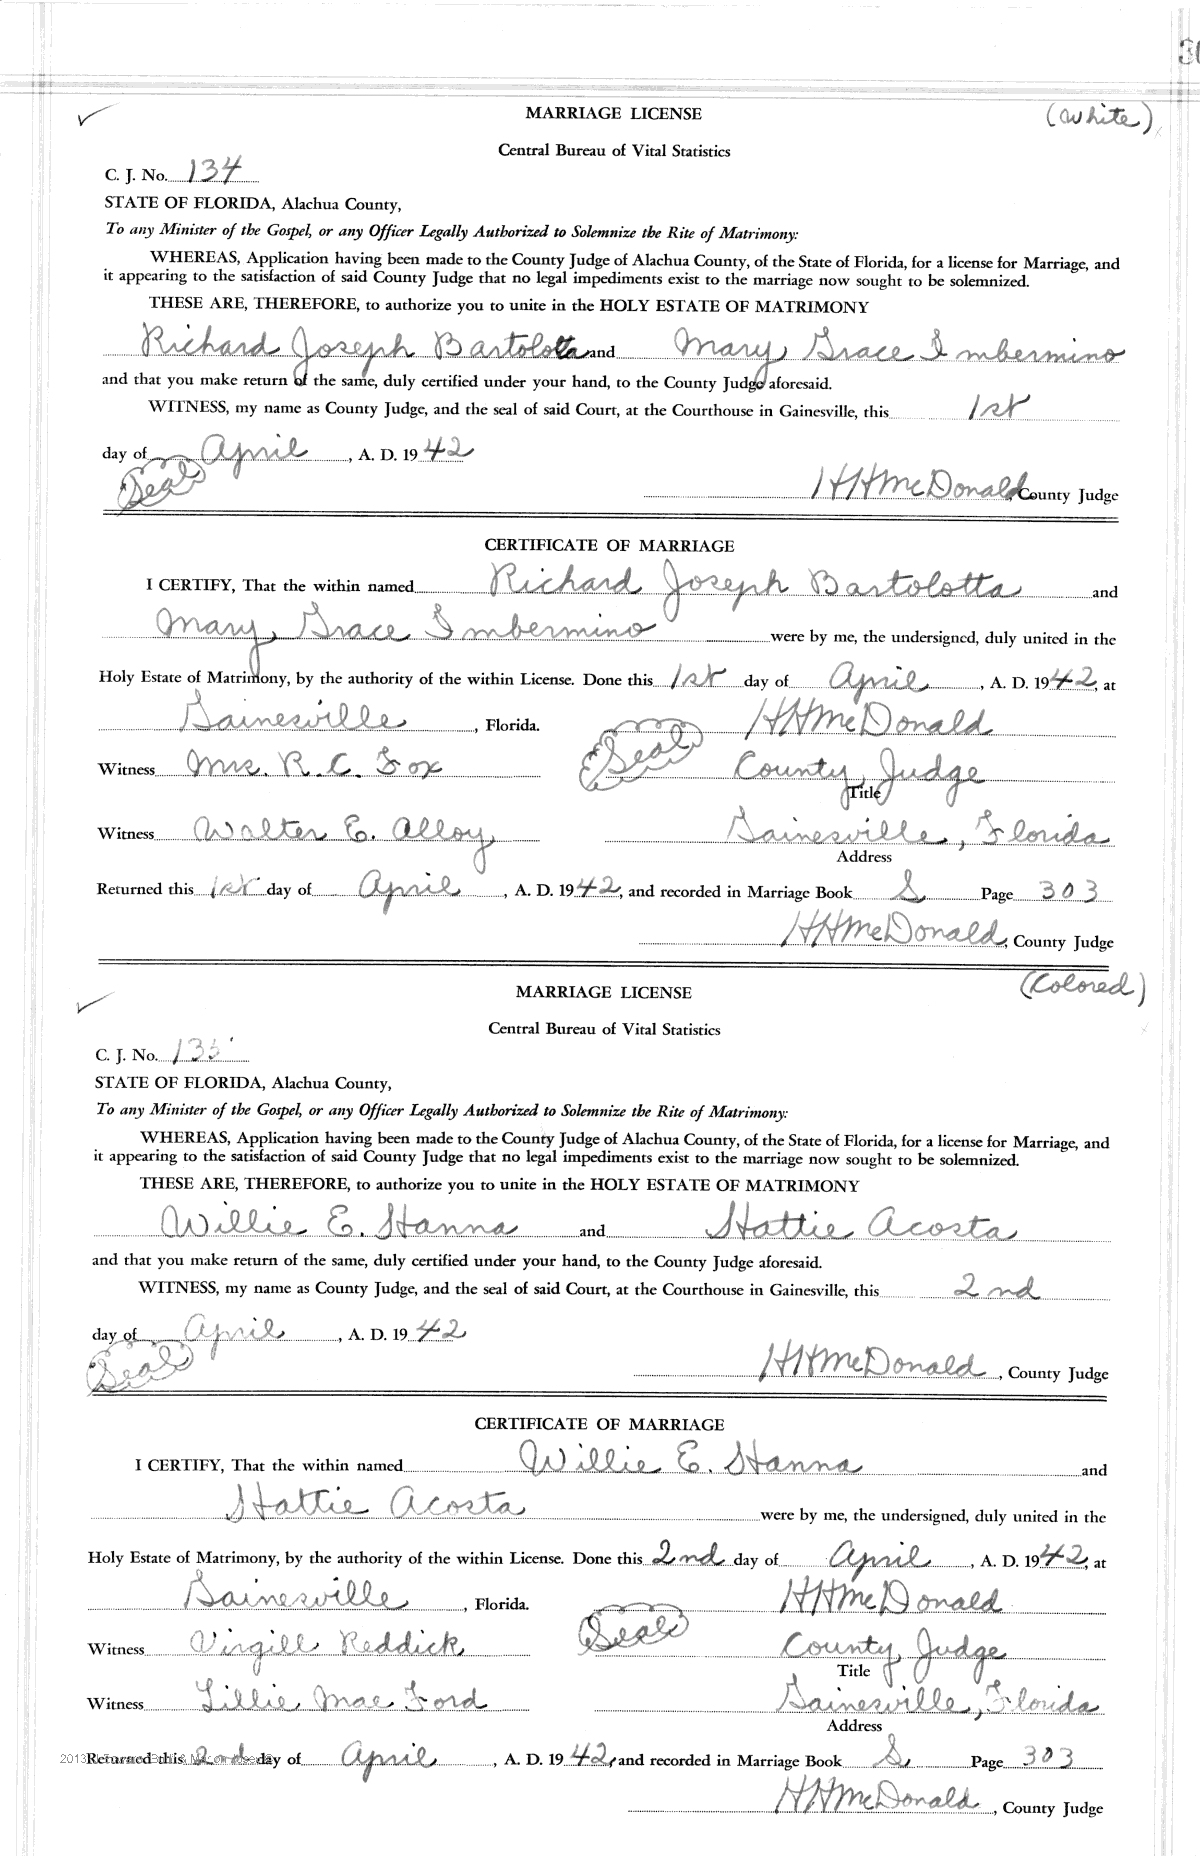 30
MARRIAGE LICENSE (White)
Central Bureau of Vital Statistics
C. J. No. 134
STATE OF FLORIDA, Alachua County,
To any Minister of the Gospel, or any Officer Legally Authorized to Solemnize the Rite of Matrimony:
WHEREAS, Application having been made to the County Judge of Alachua County, of the State of Florida, for a license for Marriage, and
it appearing to the satisfaction of said County Judge that no legal impediments exist to the marriage now sought to be solemnized.
THESE ARE, THEREFORE, to authorize you to unite in the HOLY ESTATE OF MATRIMONY
Richard Joseph Bartolotta and Mary Grace Imbermino
and that you make return of the same, duly certified under your hand, to the County Judge aforesaid.
WITNESS, my name as County Judge, and the seal of said Court, at the Courthouse in Gainesville, this 1st
day of April, A. D. 1942
(Seal) HHMcDonald, County Judge
CERTIFICATE OF MARRIAGE
I CERTIFY, That the within named Richard Joseph Bartolotta and
Mary Grace Imbermino were by me, the undersigned, duly united in the
Holy Estate of Matrimony, by the authority of the within License. Done this 1st day of April, A. D. 1942, at
Gainesville, Florida. (Seal) HHMcDonald
Witness Mrs. R. C. Fox County Judge
Title
Witness Walter E. Alloy Gainesville, Florida
Address
Returned this 1st day of April, A. D. 1942, and recorded in Marriage Book S Page 303
HHMcDonald, County Judge
MARRIAGE LICENSE (Colored)
Central Bureau of Vital Statistics
C. J. No. 135
STATE OF FLORIDA, Alachua County,
To any Minister of the Gospel, or any Officer Legally Authorized to Solemnize the Rite of Matrimony:
WHEREAS, Application having been made to the County Judge of Alachua County, of the State of Florida, for a license for Marriage, and
it appearing to the satisfaction of said County Judge that no legal impediments exist to the marriage now sought to be solemnized.
THESE ARE, THEREFORE, to authorize you to unite in the HOLY ESTATE OF MATRIMONY
Willie E. Hanna and Hattie Acosta
and that you make return of the same, duly certified under your hand, to the County Judge aforesaid.
WITNESS, my name as County Judge, and the seal of said Court, at the Courthouse in Gainesville, this 2nd
day of April, A. D. 1942
(Seal) HHMcDonald, County Judge
CERTIFICATE OF MARRIAGE
I CERTIFY, That the within named Willie E. Hanna and
Hattie Acosta were by me, the undersigned, duly united in the
Holy Estate of Matrimony, by the authority of the within License. Done this 2nd day of April, A. D. 1942, at
Gainesville, Florida. (Seal) HHMcDonald
Witness Virgill Reddick County Judge
Title
Witness Lillie Mae Ford Gainesville, Florida
Address
Returned this 2nd day of April, A. D. 1942, and recorded in Marriage Book S Page 303
HHMcDonald, County Judge